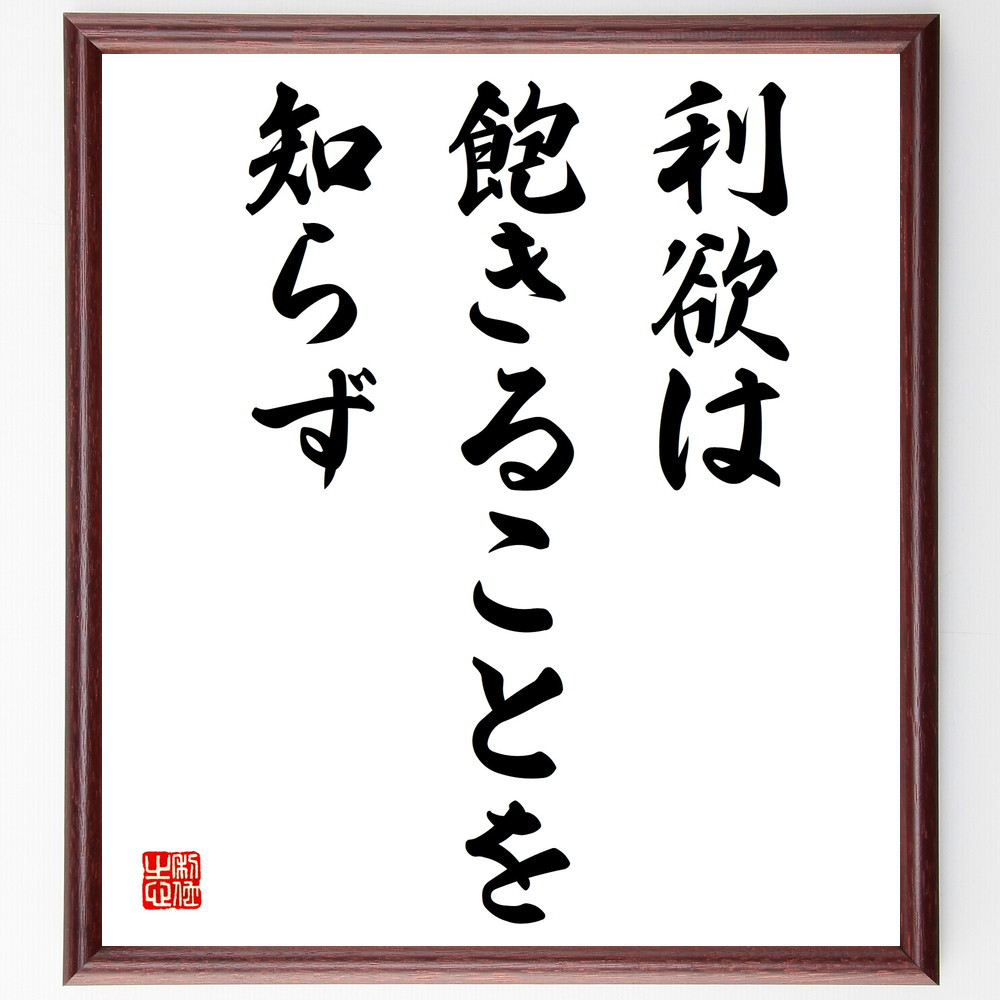 利欲は
飽きることを
知らず